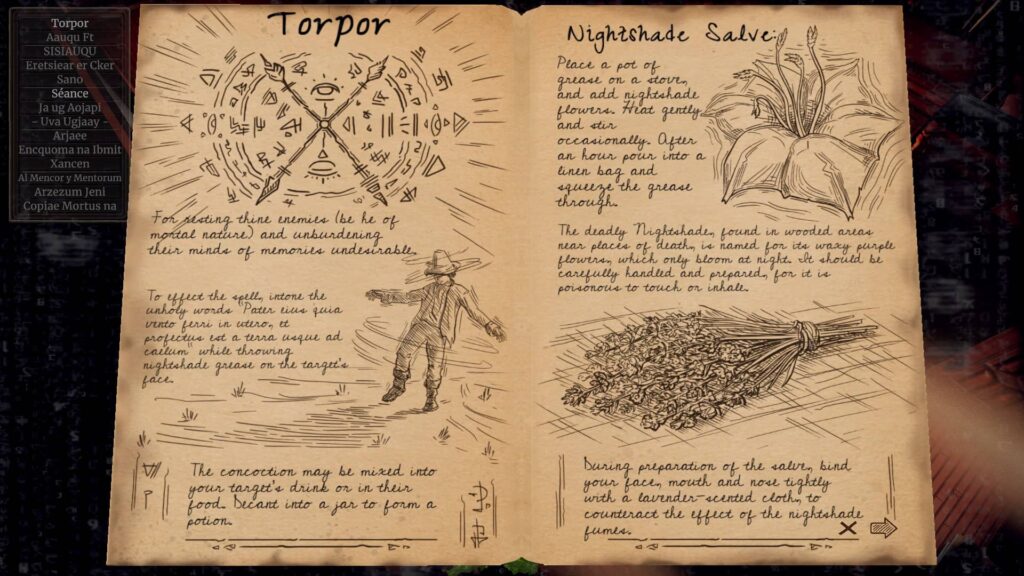 Torpor
Aauqu Ft
SISIAUQU
Eretsiear er Cker
Sano
Séance
Ja ug Aojapi
- Uva Ugjaay -
Arjaee
Encquoma na Ibmit
Xancen
Al Mencor y Mentorum
Arzezum Jeni
Copiae Mortus na
Torpor
For resting thine enemies (be he of
mortal nature) and unburdening
their minds of memories undesirable.
To effect the spell, intone the
unholy words "Pater eius quia
vento ferri in utero, et
profectus est a terra usque ad
caelum" while throwing
nightshade grease on the target's
face.
The concoction may be mixed into
your target's drink or in their
food. Decant into a jar to form a
potion.
Nightshade Salve:
Place a pot of
grease on a stove,
and add nightshade
flowers. Heat gently
and stir
occasionally. After
an hour pour into a
linen bag and
squeeze the grease
through.
The deadly Nightshade, found in wooded areas
near places of death, is named for its waxy purple
flowers, which only bloom at night. It should be
carefully handled and prepared, for it is
poisonous to touch or inhale.
During preparation of the salve, bind
your face, mouth and nose tightly
with a lavender-scented cloth, to
counteract the effect of the nightshade
fumes.